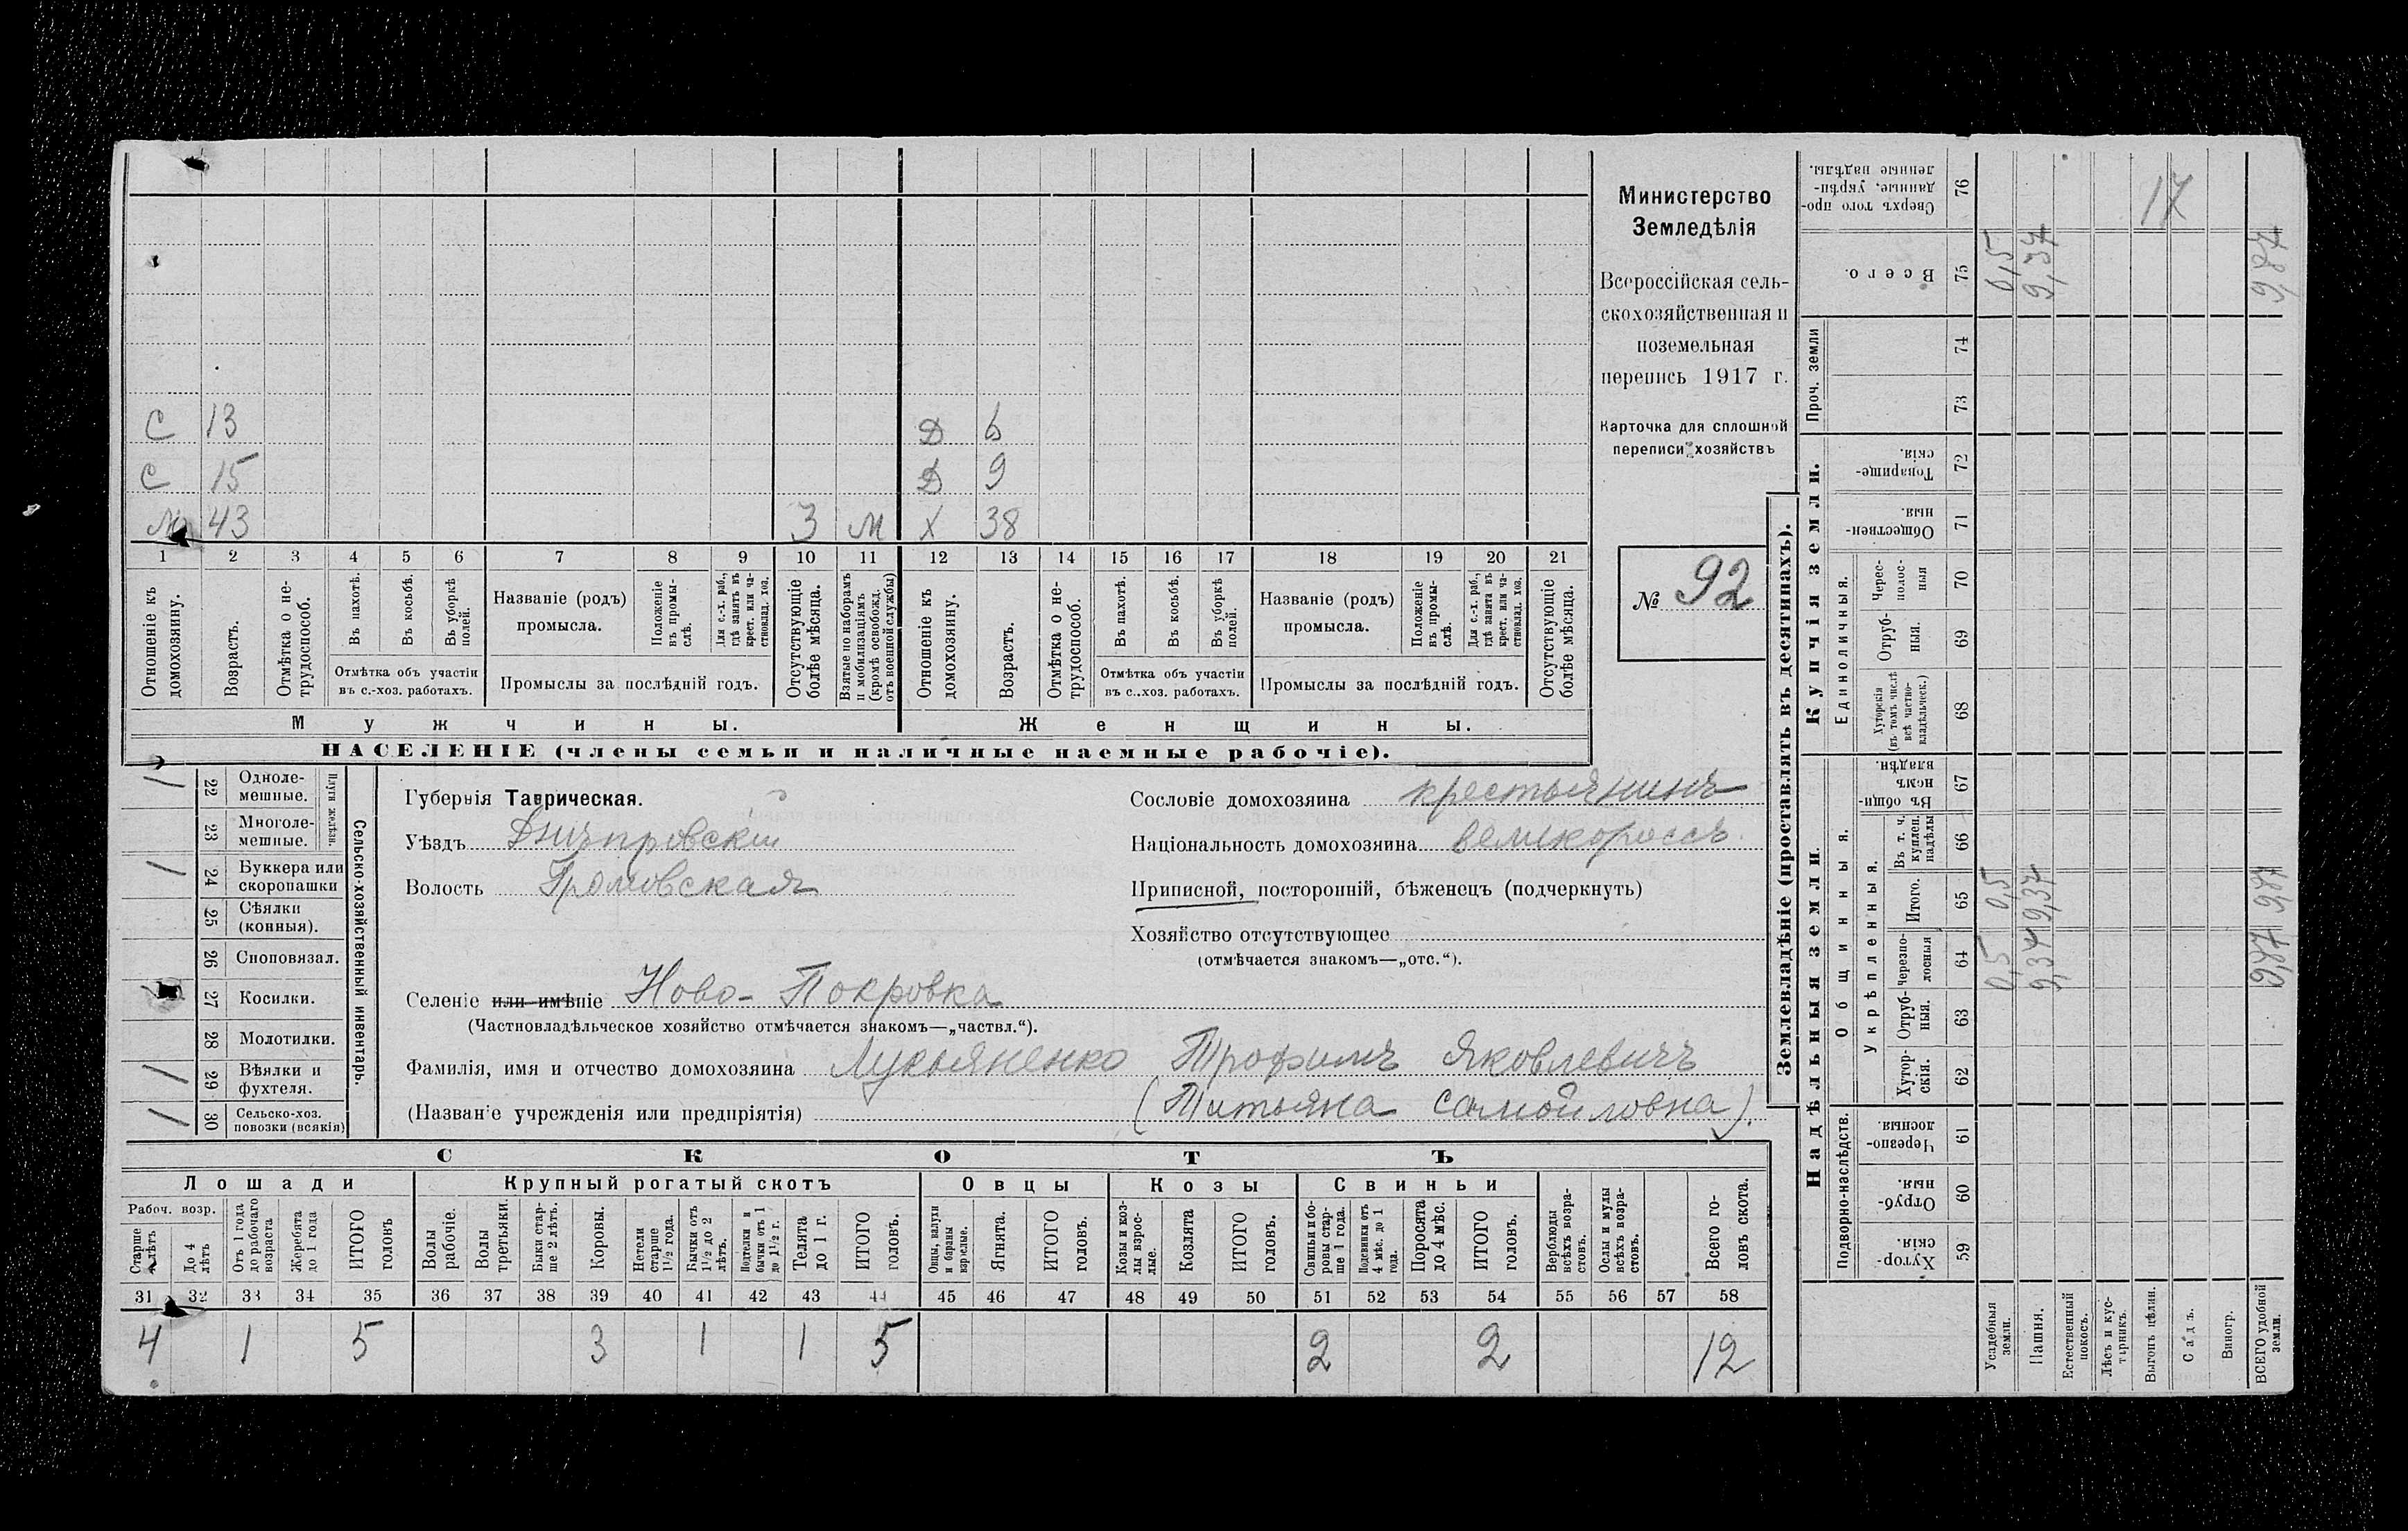 Министерство
Земледѣлія
Всероссійская сель-
скохозяйственная и
поземельная
перепись 1917 г.
Карточка для сплошной
переписи хозяйствъ
№ 92
С 13 Д 6
С 15 Д 9
М 43 3 М Х 38
1 2 3 4 5 6 7 8 9 10 11 12 13 14 15 16 17 18 19 20 21
Отношеніе къ домохозяину.
Возрастъ.
Отмѣтка о не-трудоспособ.
Въ пахотѣ.
Въ косьбѣ.
Въ уборкѣ полей.
Отмѣтка объ участіи
въ с.-хоз. работахъ.
Названіе (родъ)
промысла.
Положеніе въ промы-слѣ.
Для с.-х. раб., гдѣ занятъ въ крест. или ча-стновлад. хоз.
Промыслы за послѣдній годъ.
Отсутствующіе болѣе мѣсяца.
Взятые по наборамъ и мобилизаціямъ (кромѣ освобожд. отъ военной службы)
Отношеніе къ домохозяину.
Возрастъ.
Отмѣтка о не-трудоспособ.
Въ пахотѣ.
Въ косьбѣ.
Въ уборкѣ полей.
Отмѣтка объ участіи
въ с.-хоз. работахъ.
Названіе (родъ)
промысла.
Положеніе въ промы-слѣ.
Для с.-х. раб., гдѣ занята въ крест. или ча-стновлад. хоз.
Промыслы за послѣдній годъ.
Отсутствующіе болѣе мѣсяца.
Мужчины. Женщины.
НАСЕЛЕНІЕ (члены семьи и наличные наемные рабочіе).
Сельско-хозяйственный инвентарь.
Плуги желѣзн.
1 22 Одноле-мешные.
23 Многоле-мешные.
1 24 Буккера или скоропашки
25 Сѣялки (конныя).
26 Сноповязал.
27 Косилки.
28 Молотилки.
1 29 Вѣялки и фухтеля.
1 30 Сельско-хоз. повозки (всякія)
Губернія Таврическая.
Уѣздъ Днѣпровскій
Волость Громовская
Селеніе или имѣніе Ново-Покровка
(Частновладѣльческое хозяйство отмѣчается знакомъ—„частвл.“).
Фамилія, имя и отчество домохозяина Лукьяненко Трофимъ Яковлевичъ
(Названіе учрежденія или предпріятія) (Татьяна Самойловна).
Сословіе домохозяина крестьянинъ
Національность домохозяина великороссъ.
Приписной, посторонній, бѣженецъ (подчеркнуть)
Хозяйство отсутствующее
(отмѣчается знакомъ—„отс.“).
СКОТЪ
Лошади Крупный рогатый скотъ Овцы Козы Свиньи
Рабоч. возр.
Старше 4 лѣтъ
До 4 лѣтъ
Отъ 1 года до рабочаго возраста
Жеребята до 1 года
ИТОГО головъ
Волы рабочіе.
Волы третьяки.
Быки стар-ше 2 лѣтъ.
Коровы.
Нетели старше 1½ года.
Бычки отъ 1½ до 2 лѣтъ.
Подтелки и бычки отъ 1 до 1½ г.
Телята до 1 г.
ИТОГО головъ.
Овцы, валухи и бараны взрослые.
Ягнята.
ИТОГО головъ.
Козы и коз-лы взрос-лые.
Козлята
ИТОГО головъ.
Свиньи и бо-ровы стар-ше 1 года.
Подсвинки отъ 4 мѣс. до 1 года.
Поросята до 4 мѣс.
ИТОГО головъ.
Верблюды всѣхъ возра-стовъ.
Ослы и мулы всѣхъ возра-стовъ.
Всего го-ловъ скота.
31 32 33 34 35 36 37 38 39 40 41 42 43 44 45 46 47 48 49 50 51 52 53 54 55 56 57 58
4 1 5 3 1 1 5 2 2 12
Землевладѣніе (проставлять въ десятинахъ).
Надѣльныя земли.
Купчія земли.
Проч. земли
Подворно-наслѣдств.
Общинныя.
Укрѣпленныя.
Единоличныя.
Хутор-скія. 59
Отруб-ныя. 60
Черезпо-лосныя 61
Хутор-скія. 62
Отруб-ныя. 63
Черезпо-лосныя 64
Итого. 65
Въ т. ч. куплен. надѣлы 66
Въ общи-номъ владѣн. 67
Хуторскія (въ томъ числѣ всѣ частно-владѣльческ.) 68
Отруб-ныя. 69
Черес-полос-ныя 70
Обществен-ныя. 71
Товарище-скія. 72
73
74
Всего. 75
Сверхъ того про-данные, укрѣп-ленные надѣлы. 76
Усадебныя земли. 0,5 0,5 0,5
Пашня. 9,37 9,37 9,37
Естественный покосъ.
Лѣсъ и кус-тарникъ.
Выгонъ цѣлин. 17
Садъ.
Виногр.
ВСЕГО удобной земли. 9,87 9,87 9,87